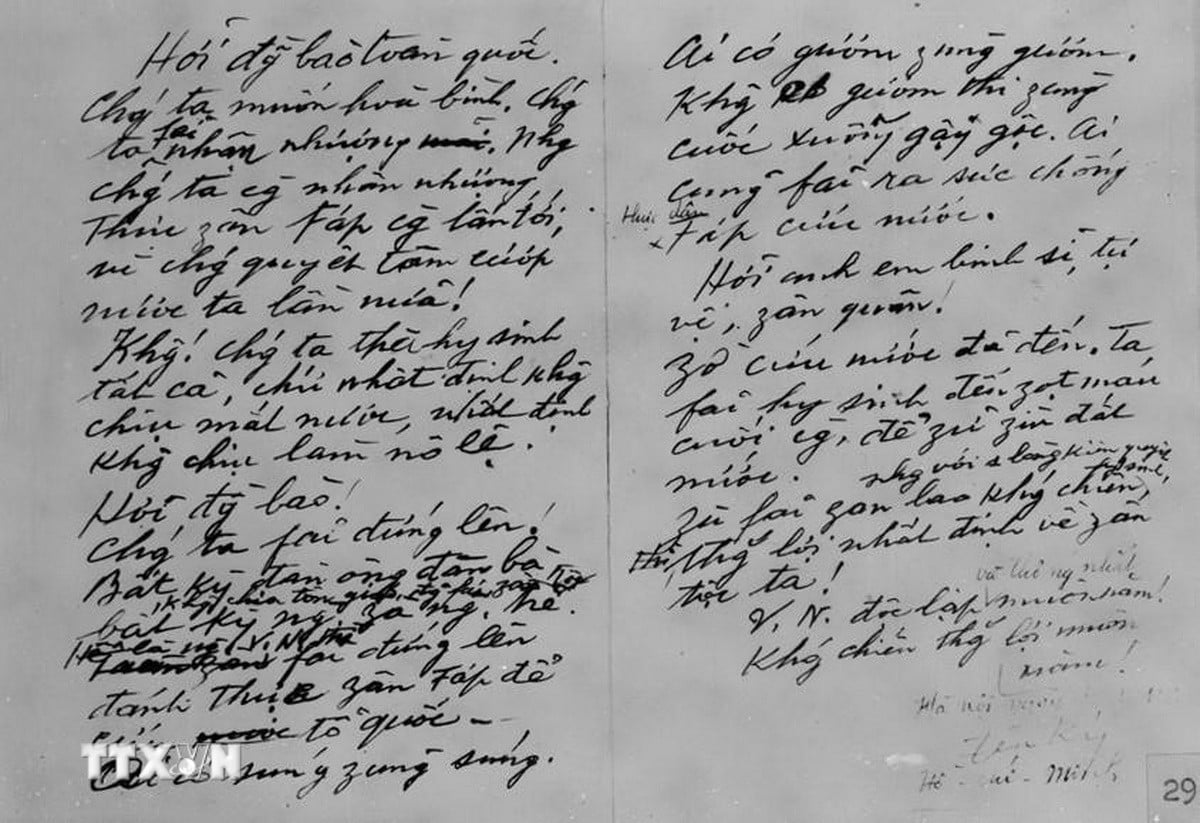 Hỡi đ̃g bào toàn quốc.
Chǵ ta muốn hoà bình. Chǵ
ta fải nhân nhượng. Nhg
chǵ ta cg̀ nhân nhượng
Thực zân Fáp cg̀ lấn tới,
vì chǵ quyết tâm cướp
nước ta lần nữa!
Khĝ! Chǵ ta thà hy sinh
tất cả, chứ nhất định khĝ
chịu mất nước, nhất định
khĝ chịu làm nô lệ.
Hỡi đg̀ bào!
Chǵ ta fải đứng lên!
Bất kỳ đàn ông đàn bà
khĝ chia tôn giáo, đg̉ fái, zân tộc
bất kỳ ng. zà ng. trẻ.
Hễ là ng. V.N. thì
fải đứng lên
đánh thực zân Fáp để
cứu nước tổ quốc -
Ai có súng zùng súng.
TTXVN
Ai có gươm zùng gươm.
Khĝ có gươm thì zùng
cuốc xuổng gậy gộc. Ai
cũng fải ra sức chống
thực dân
x Fáp cứu nước.
Hỡi anh em binh sĩ, tự
vệ, zân quân!
Zờ cứu nước đã đến. Ta
fải hy sinh đến zọt máu
cuối cg̀, để zữ zìn đất
nước.
Zù fải zan lao khǵ chiến,
nhg với 1 lòng kiên quyết
hy sinh,
Thì, thğ lợi nhất định về zân
tộc ta!
và thống nhất
V.N. độc lập muôn năm!
Khǵ chiến thğ lợi muôn
năm!
Hà nội ngày
tên ký
Hồ-chí-Minh
29